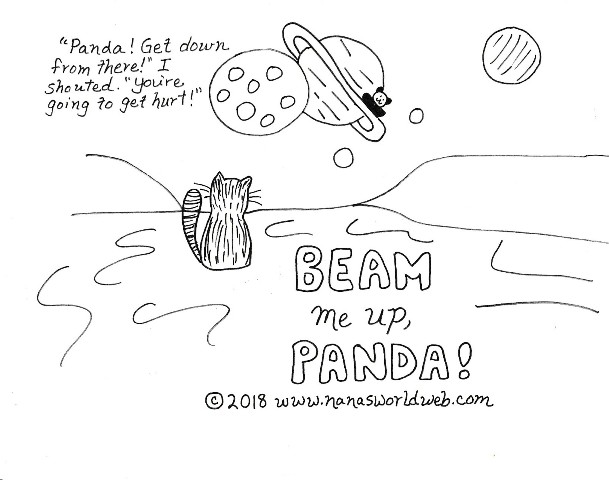 "Panda! Get down
from there!" I
shouted. "You're
going to get hurt!"
BEAM
me up,
PANDA!
© 2018 www.nanasworldweb.com